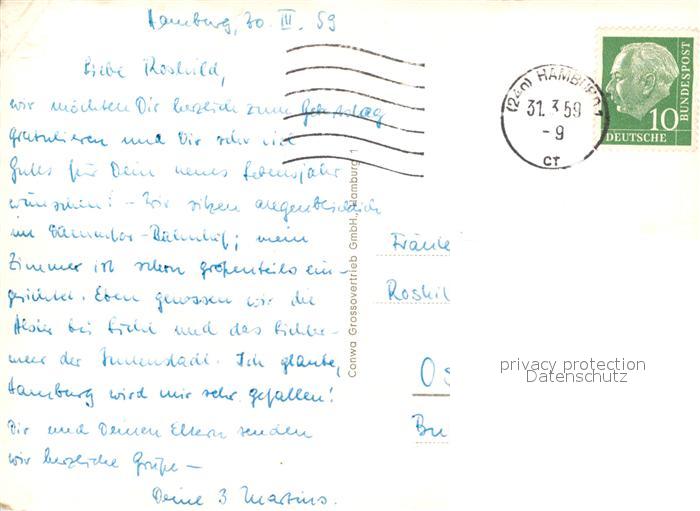 Hamburg, 30. III. 59
Liebe Roshild,
wir möchten Dir herzlich zum Geburtstag
gratulieren und Dir sehr viel
Gutes für Dein neues Lebensjahr
wünschen! – Wir sitzen augenblicklich
im Dammtor-Bahnhof; mein
Zimmer ist schon größenteils ein-
gerichtet. Eben genossen wir die
Alster bei Licht und das Lichter-
meer der Innenstadt. Ich glaube,
Hamburg wird mir sehr gefallen!
Dir und Deinen Eltern senden
wir herzliche Grüße –
Deine 3 Martins.
Conwa Grossovertrieb GmbH., Hamburg 1
(24a) HAMBURG 1
31. 3. 59
- 9
CT
10
DEUTSCHE
BUNDESPOST
Fräule
Roshil
Os
Bu
privacy protection
Datenschutz